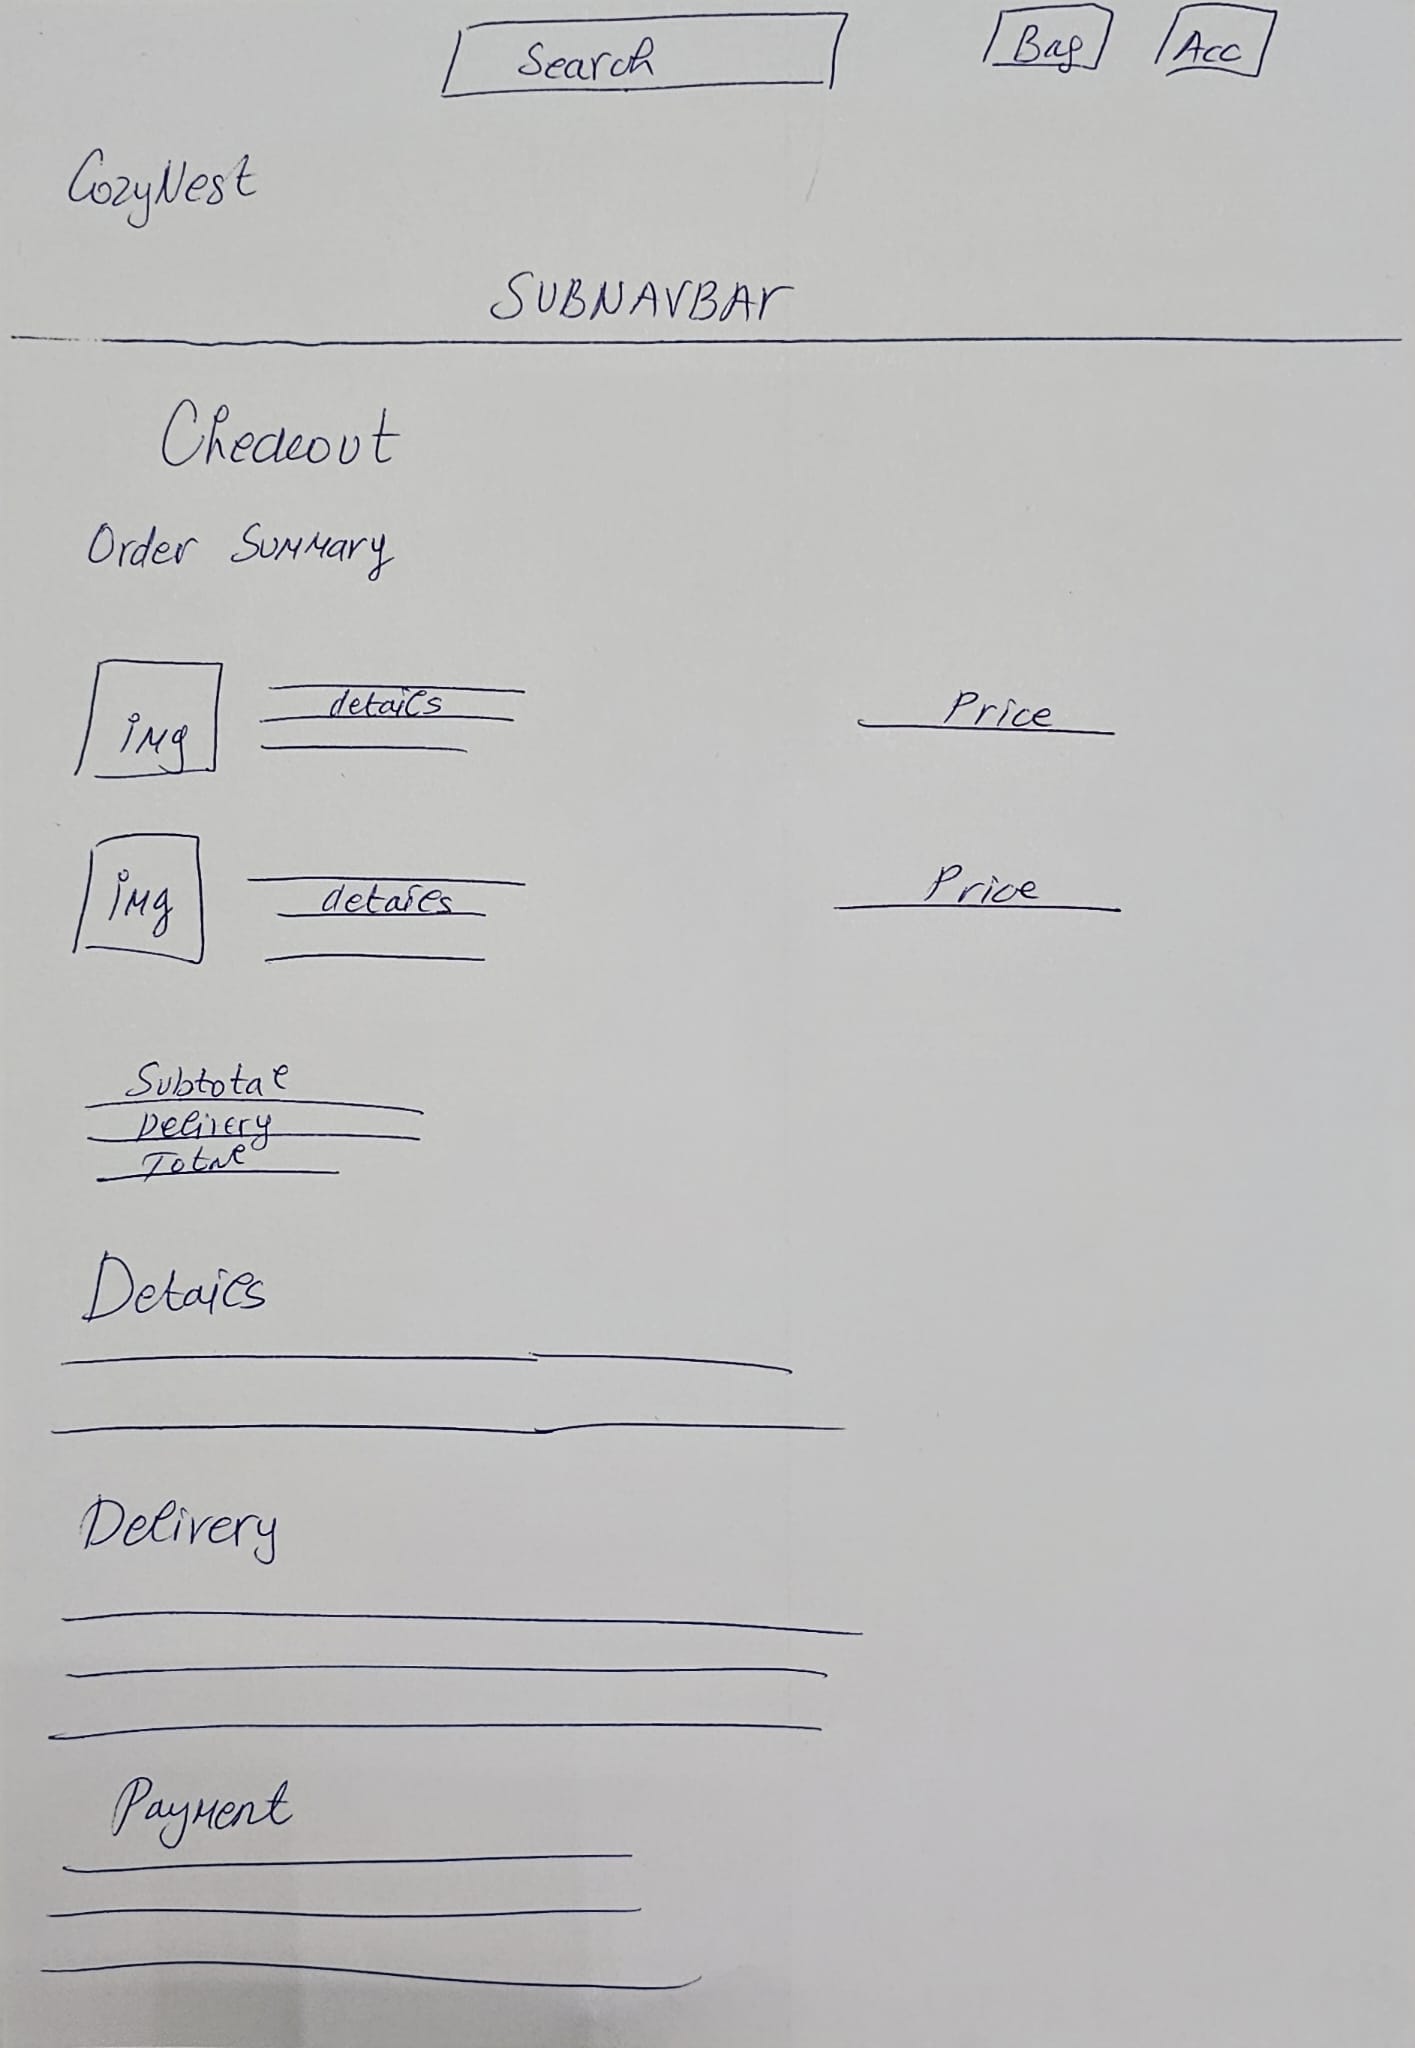 Search
Bag
Acc
CozyNest
SUBNAVBAr
Checkout
Order Summary
img
details
Price
img
details
Price
Subtotal
Delivery
Total
Details
Delivery
Payment